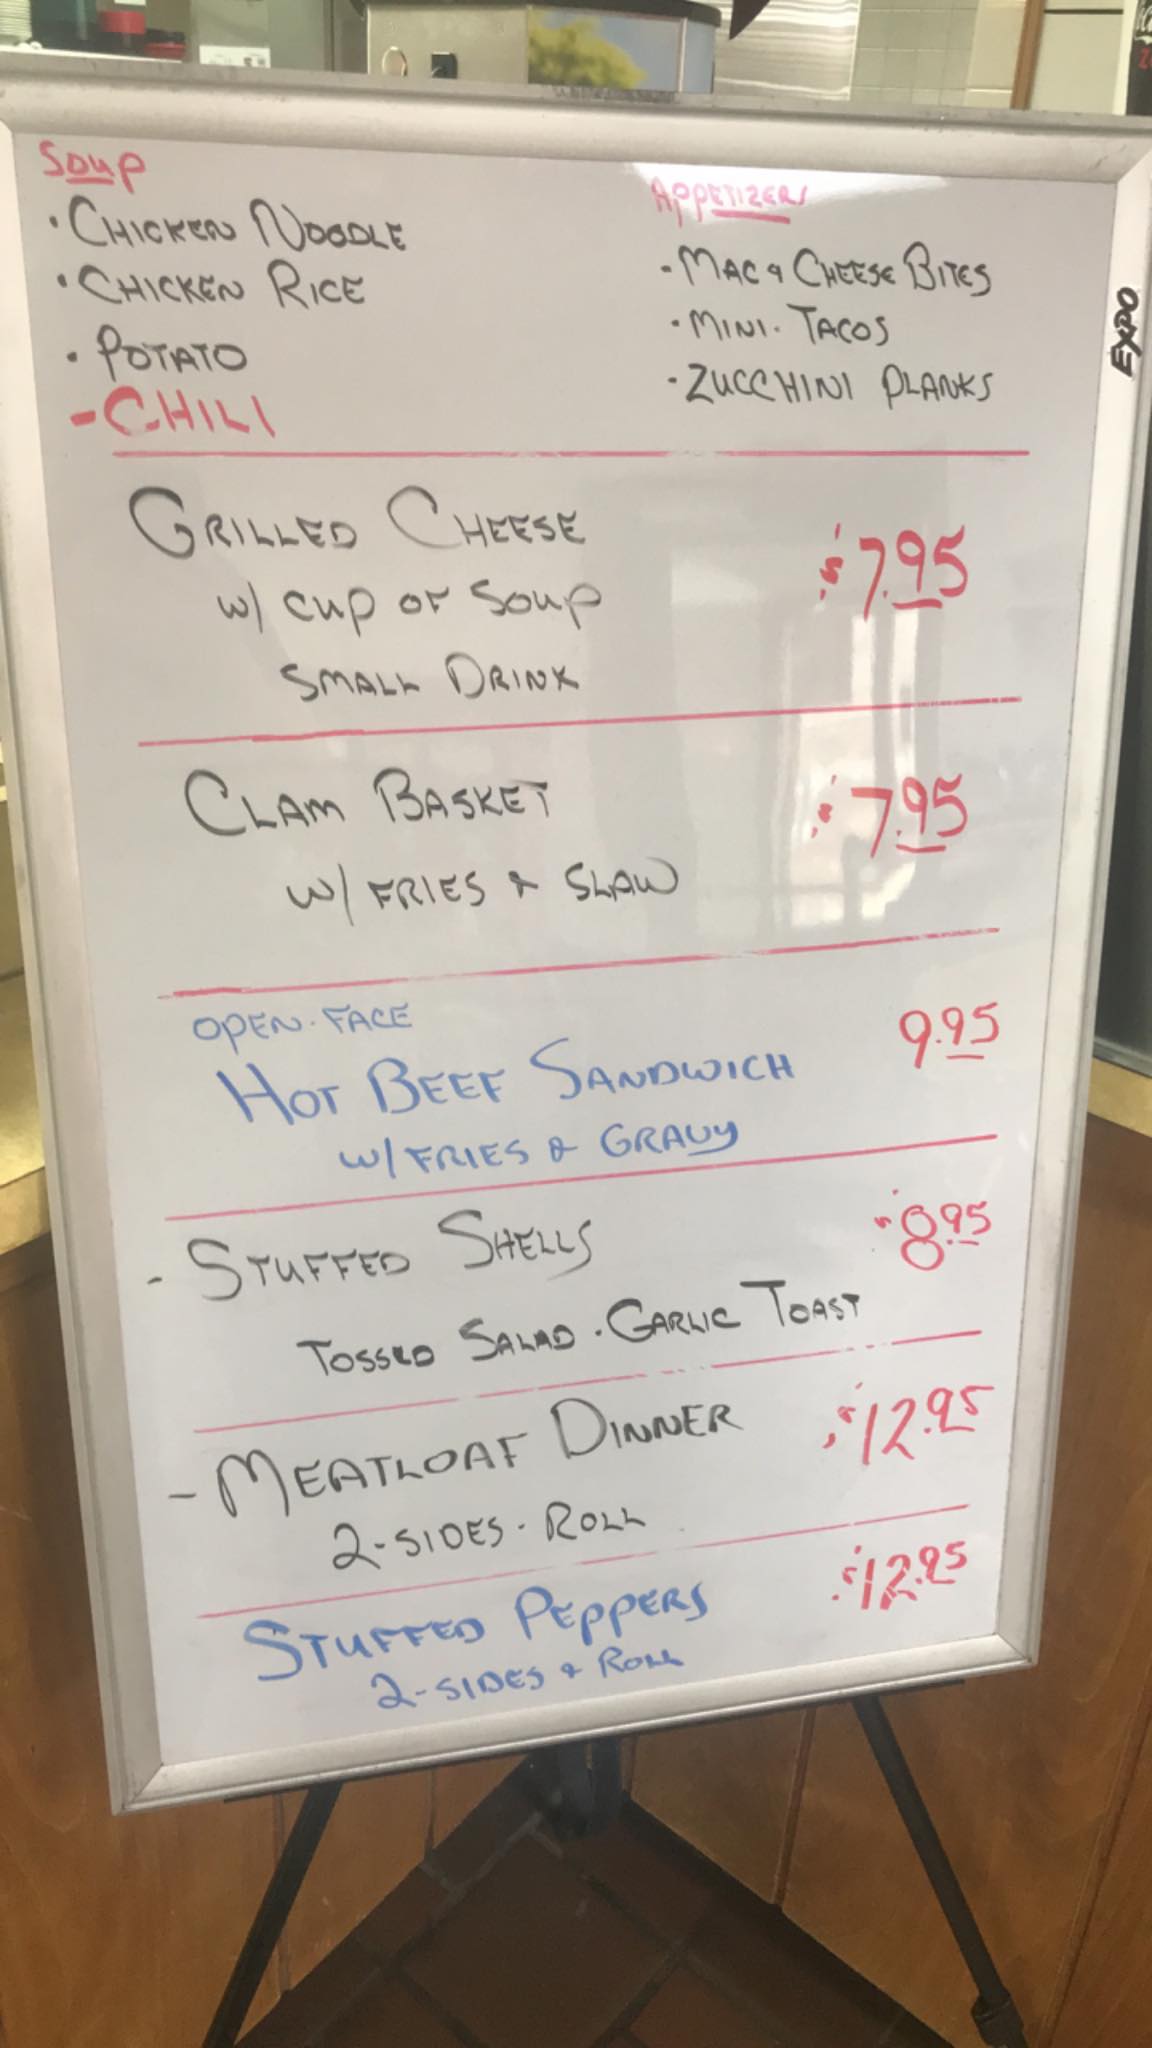 Soup
• CHICKEN NOODLE
• CHICKEN RICE
• POTATO
- CHILI
APPETIZERS
• MAC & CHEESE BITES
• MINI • TACOS
• ZUCCHINI PLANKS
EXPO
GRILLED CHEESE
w/ cup of Soup
SMALL DRINK
$7.95
CLAM BASKET
w/ FRIES & SLAW
$7.95
OPEN • FACE
HOT BEEF SANDWICH
w/ FRIES & GRAVY
9.95
- STUFFED SHELLS
TOSSED SALAD • GARLIC TOAST
$8.95
- MEATLOAF DINNER
2-SIDES • ROLL
$12.95
STUFFED PEPPERS
2-SIDES & ROLL
$12.95